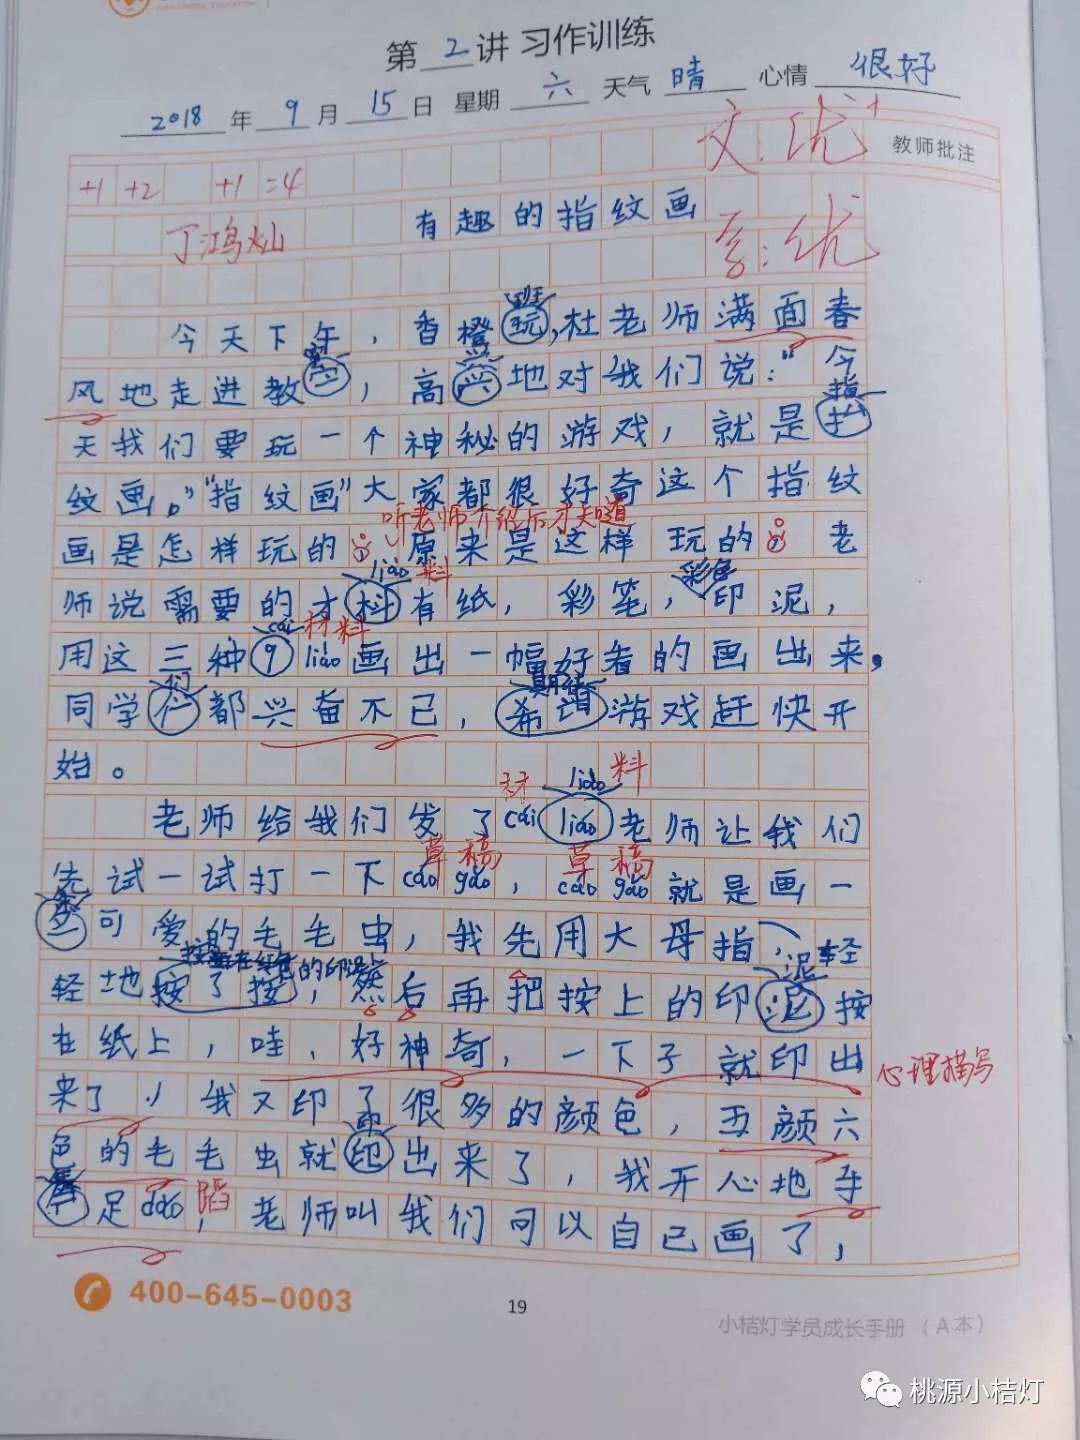 第 2 讲 习作训练
2018 年 9 月 15 日 星期 六 天气 晴 心情 很好
文:优+ 教师批注
+1 +2 +1 =4
丁鸿灿 有趣的指纹画
字:优
班
今天下午，香橙玩,杜老师满面春
室 兴
风地走进教，高兴地对我们说："今
指
天我们要玩一个神秘的游戏，就是
纹画。"指纹画"大家都很好奇这个指纹
听老师介绍后才知道
画是怎样玩的 原来是这样玩的 老
liào 料 彩色
师说需要的才料有纸，彩笔，印泥，
cái 材料
用这三种 liào画出一幅好看的画出来，
们 期待
同学们都兴奋不已，希望游戏赶快开
始。
材 liào 料
老师给我们发了cái liáo老师让我们
草稿 草稿
先试一试打一下cǎo gǎo，cǎo gǎo就是画一
条
可爱的毛毛虫，我先用大母指，轻
的印泥上 泥
轻地按了按，然后再把按上的印泥按
在纸上，哇，好神奇，一下子就印出 心理描写
来了！我又印了很多的颜色，五颜六
印
色的毛毛虫就印出来了，我开心地手
舞
舞足dǎo蹈，老师叫我们可以自己画了，
400-645-0003
19
小桔灯学员成长手册（A本）
桃源小桔灯